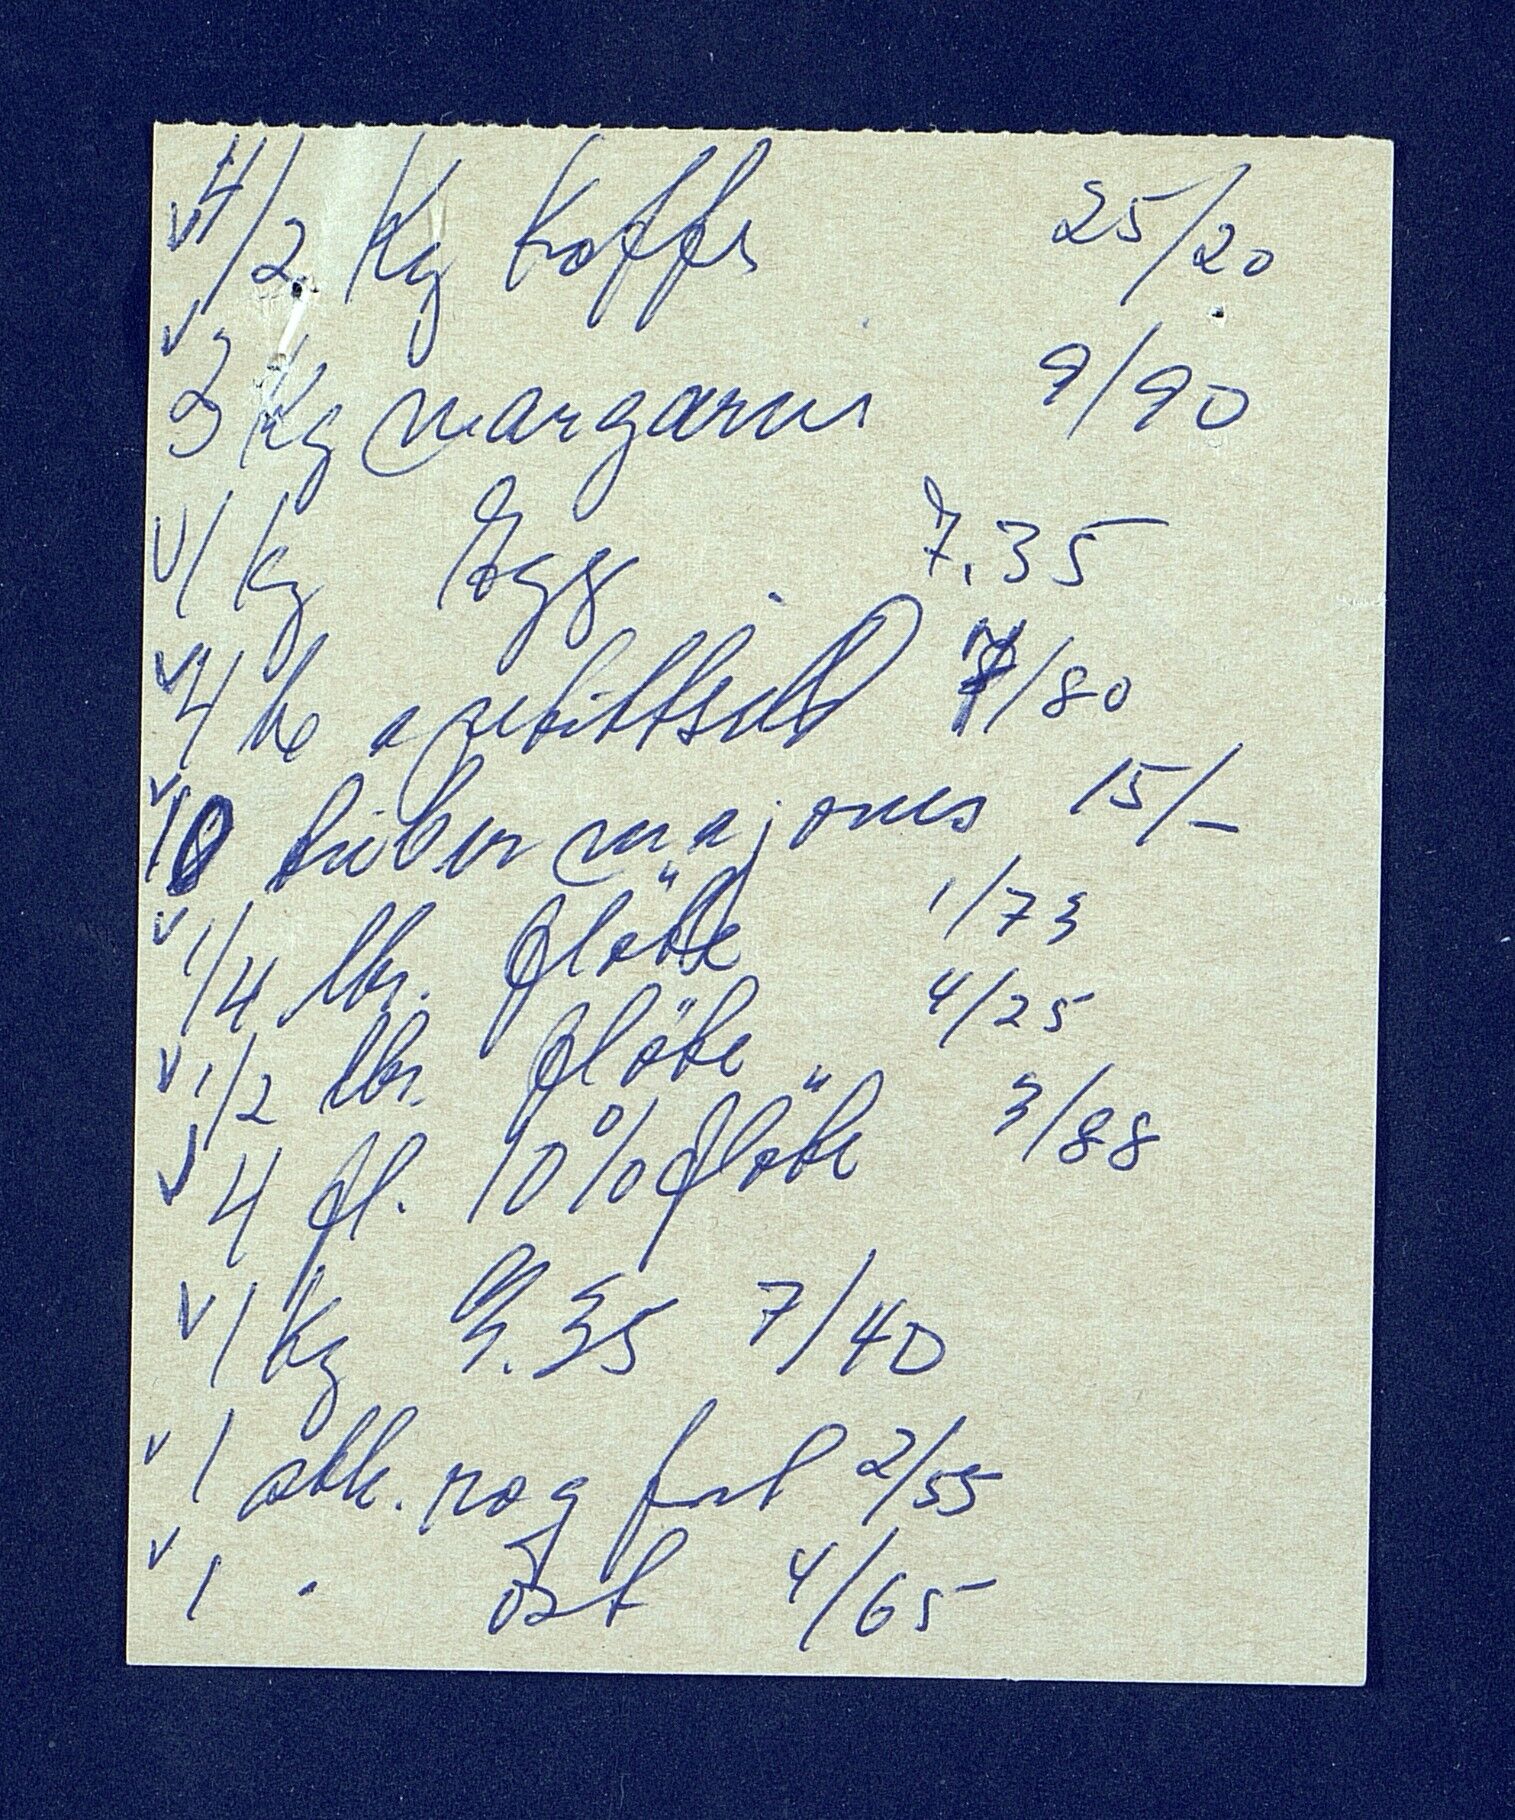 V 4/2 Kg Kaffe 25/20
V 3 Kg margarin 9/90
V 1 kg Egg 7.35
V 4 bx apetittsild /80
V 10 tuber majones 15/-
V 1/4 ltr. fløte 1/73
V 1/2 ltr. fløte 4/25
V 4 fl. 10% fløte 3/88
V 1 Kg G.35 7/40
V 1 stk. røg 2/55
V 1 " ost 4/65